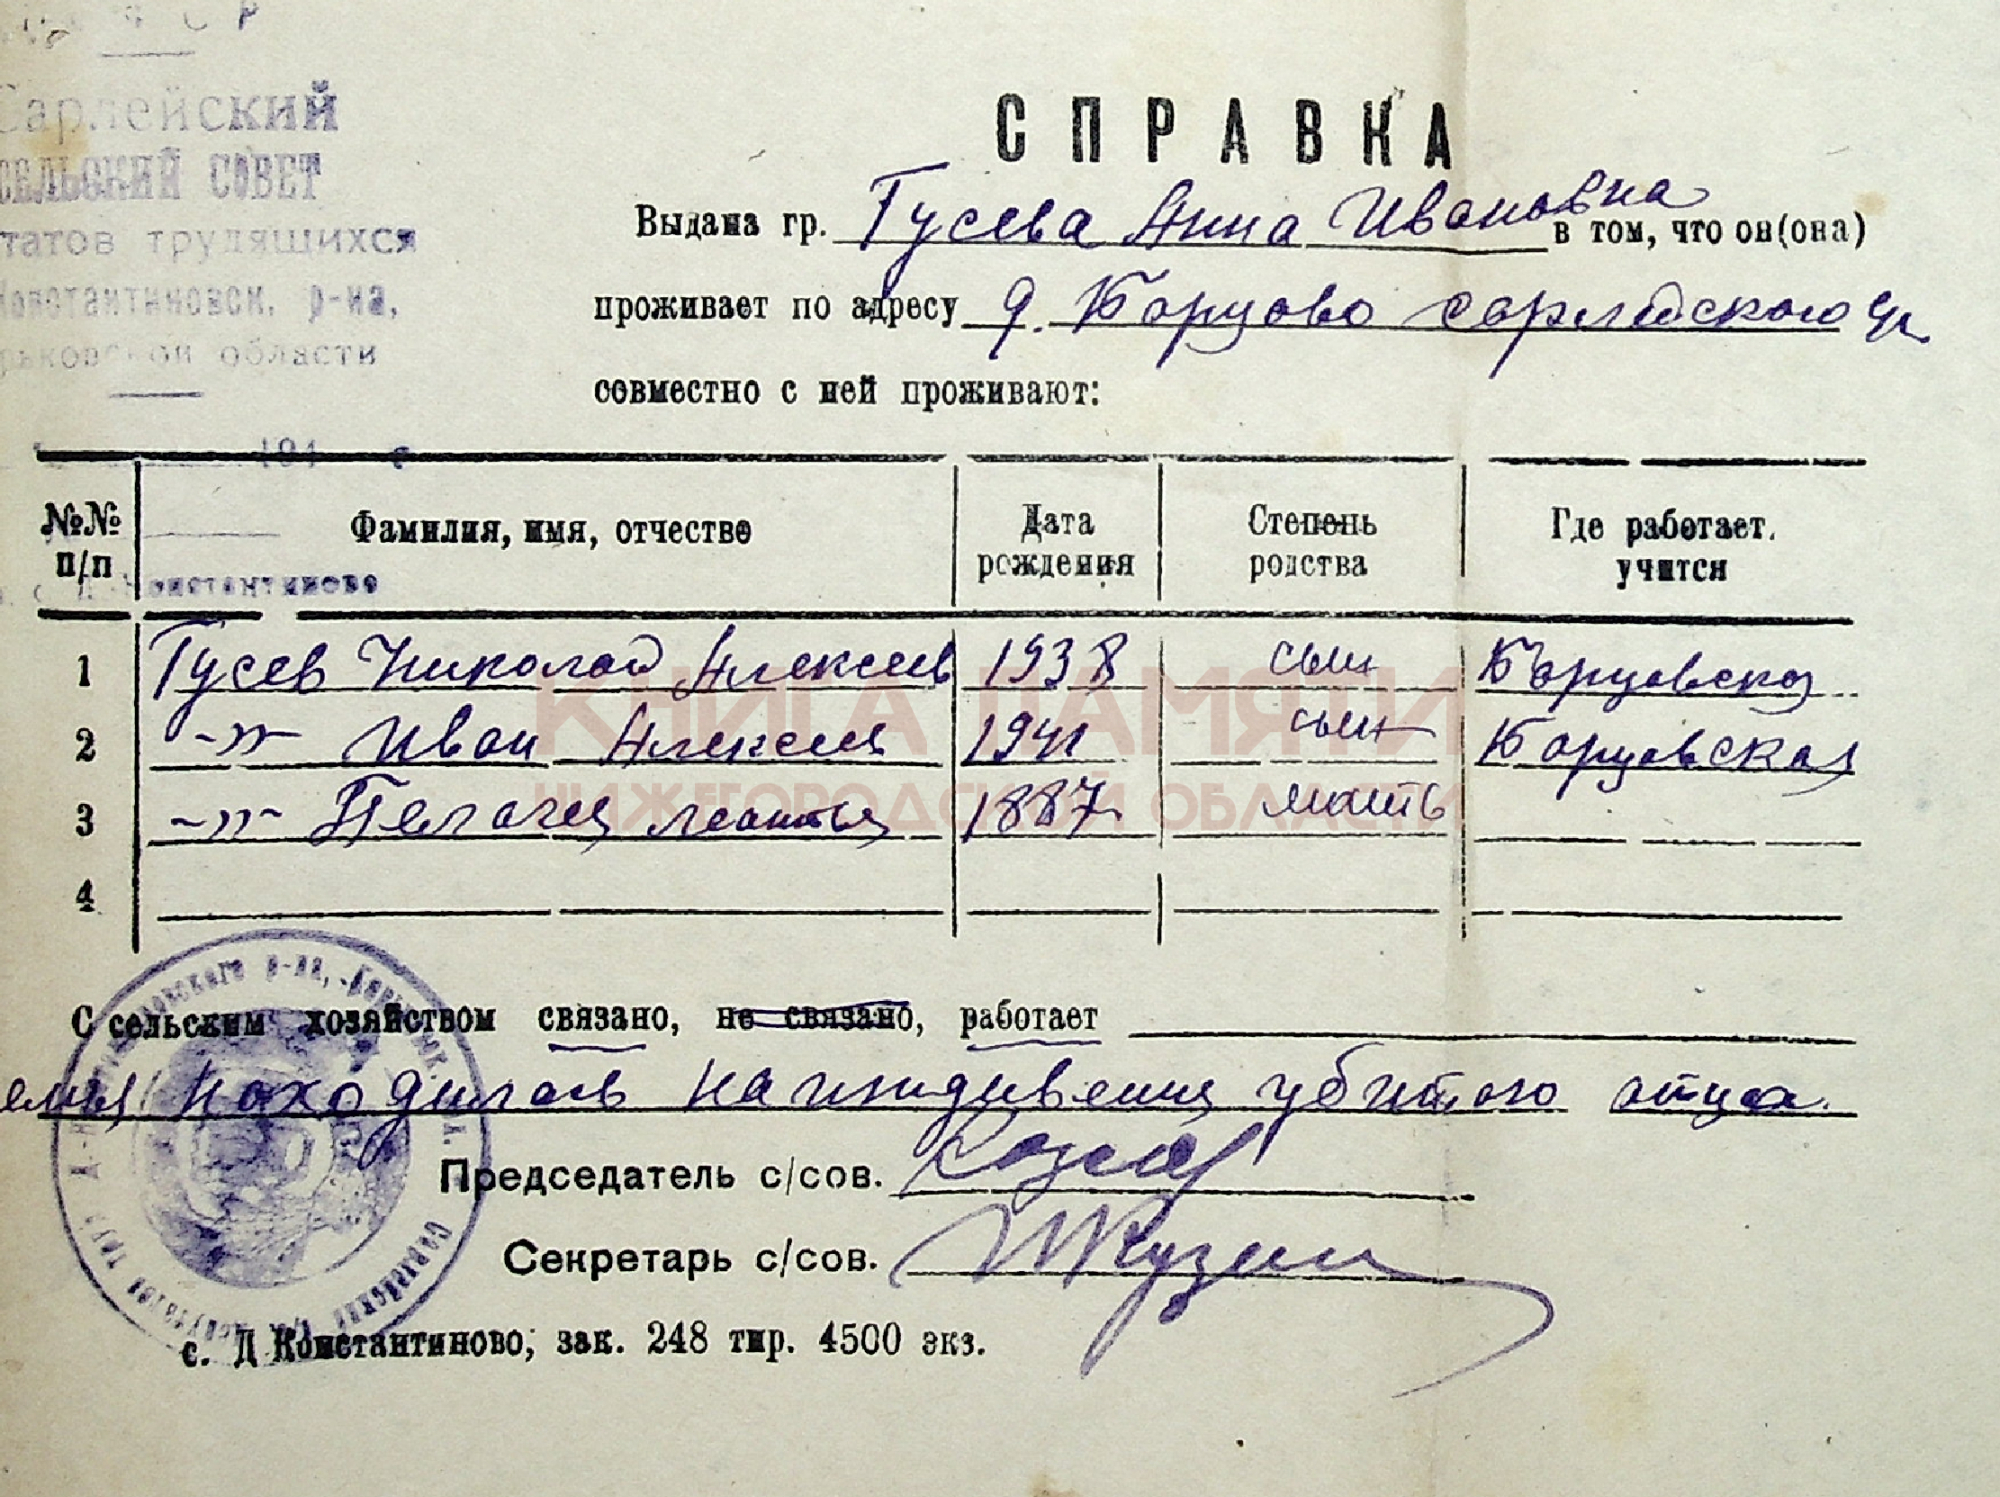 Сарлейский
СЕЛЬСКИЙ СОВЕТ
татов трудящихся
Константиновск. р-на,
рьковской области
194 г
Константиново
СПРАВКА
Выдана гр. Гусева Анна Ивановна в том, что он(она)
проживает по адресу д. Борцово Сарлейского
совместно с ней проживают:
№№ п/п Фамилия, имя, отчество Дата рождения Степень родства Где работает. учится
1 Гусев Николай Алексеев 1938 сын Борцовская
2 -»- Иван Алексеев 1941 сын Борцовская
3 -»- Пелагея Леонтья 1887 мать
4
КНИГА ПАМЯТИ
НИЖЕГОРОДСКОЙ ОБЛАСТИ
С сельским хозяйством связано, не связано, работает
емья находилась на иждивении убитого отца.
Председатель с/сов.
Секретарь с/сов.
с. Д Константиново, зак. 248 тир. 4500 экз.